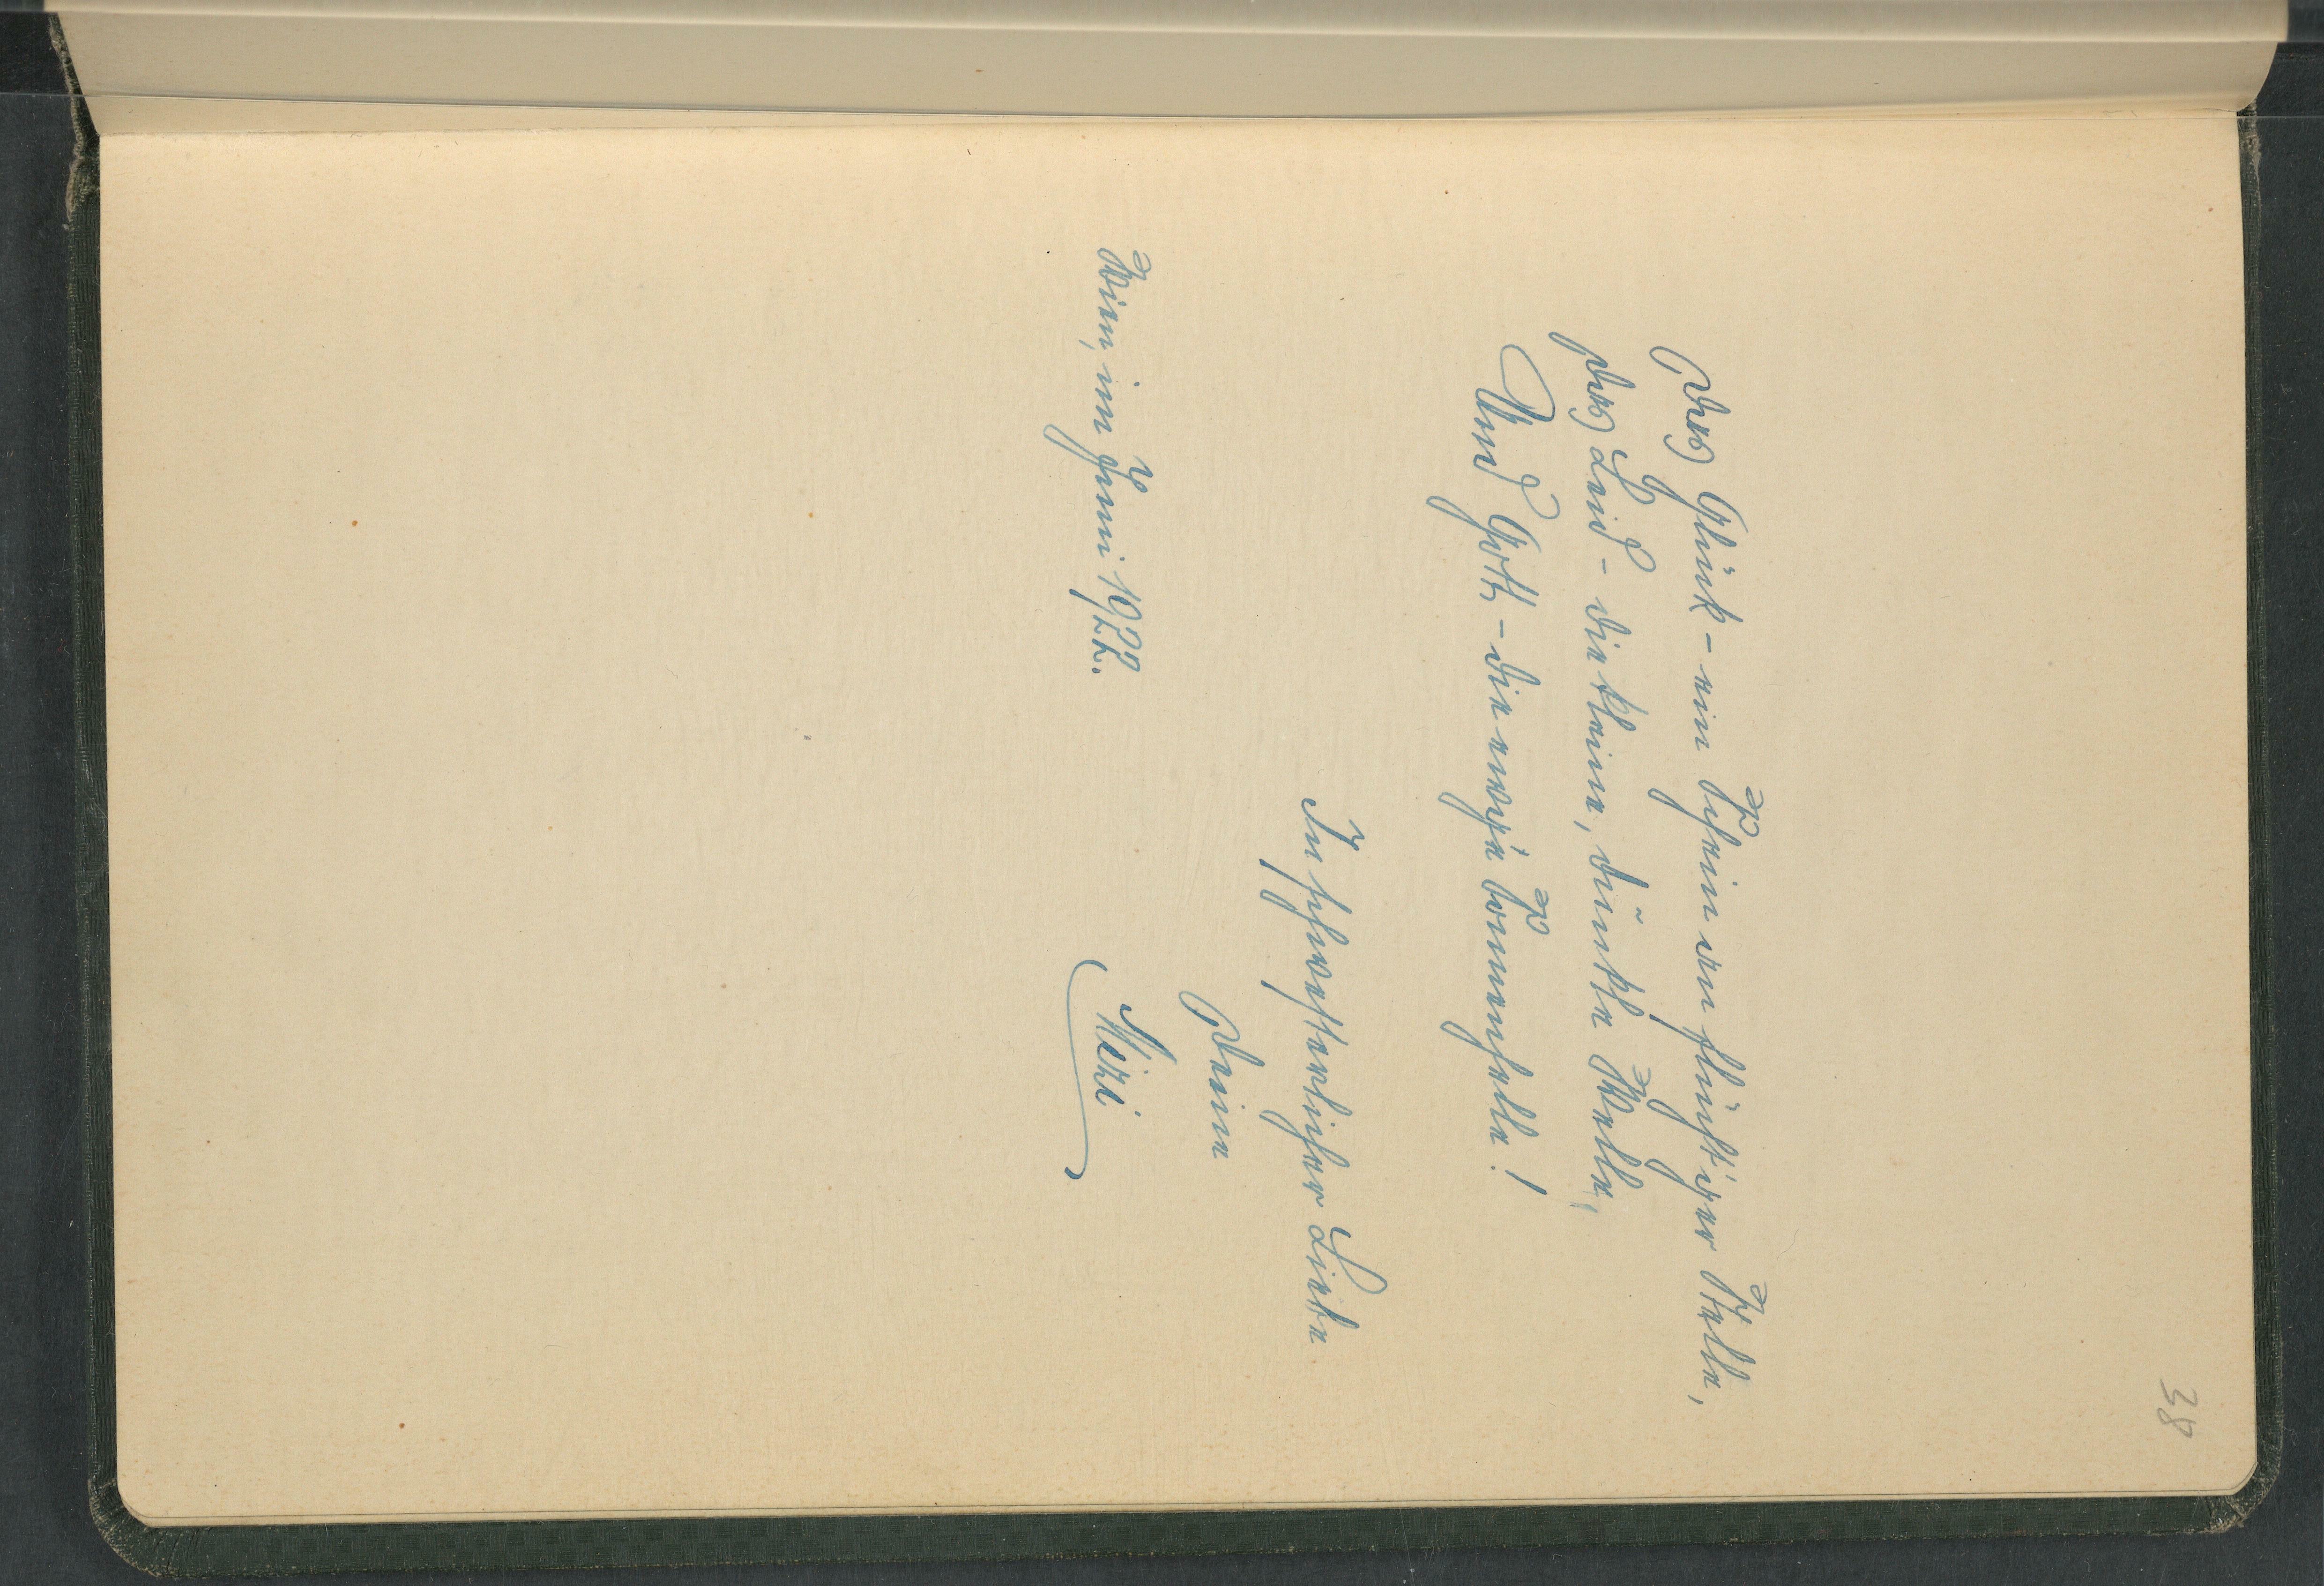 38
Das Glück – ein Schein an flücht'ger Stelle,
das Leid – die kleine, dünkle Welle,
Und Gott – die ewige Sonnenhelle!
In schwesterlicher Liebe
Deine
Mizi
Wien, im Juni 1922.